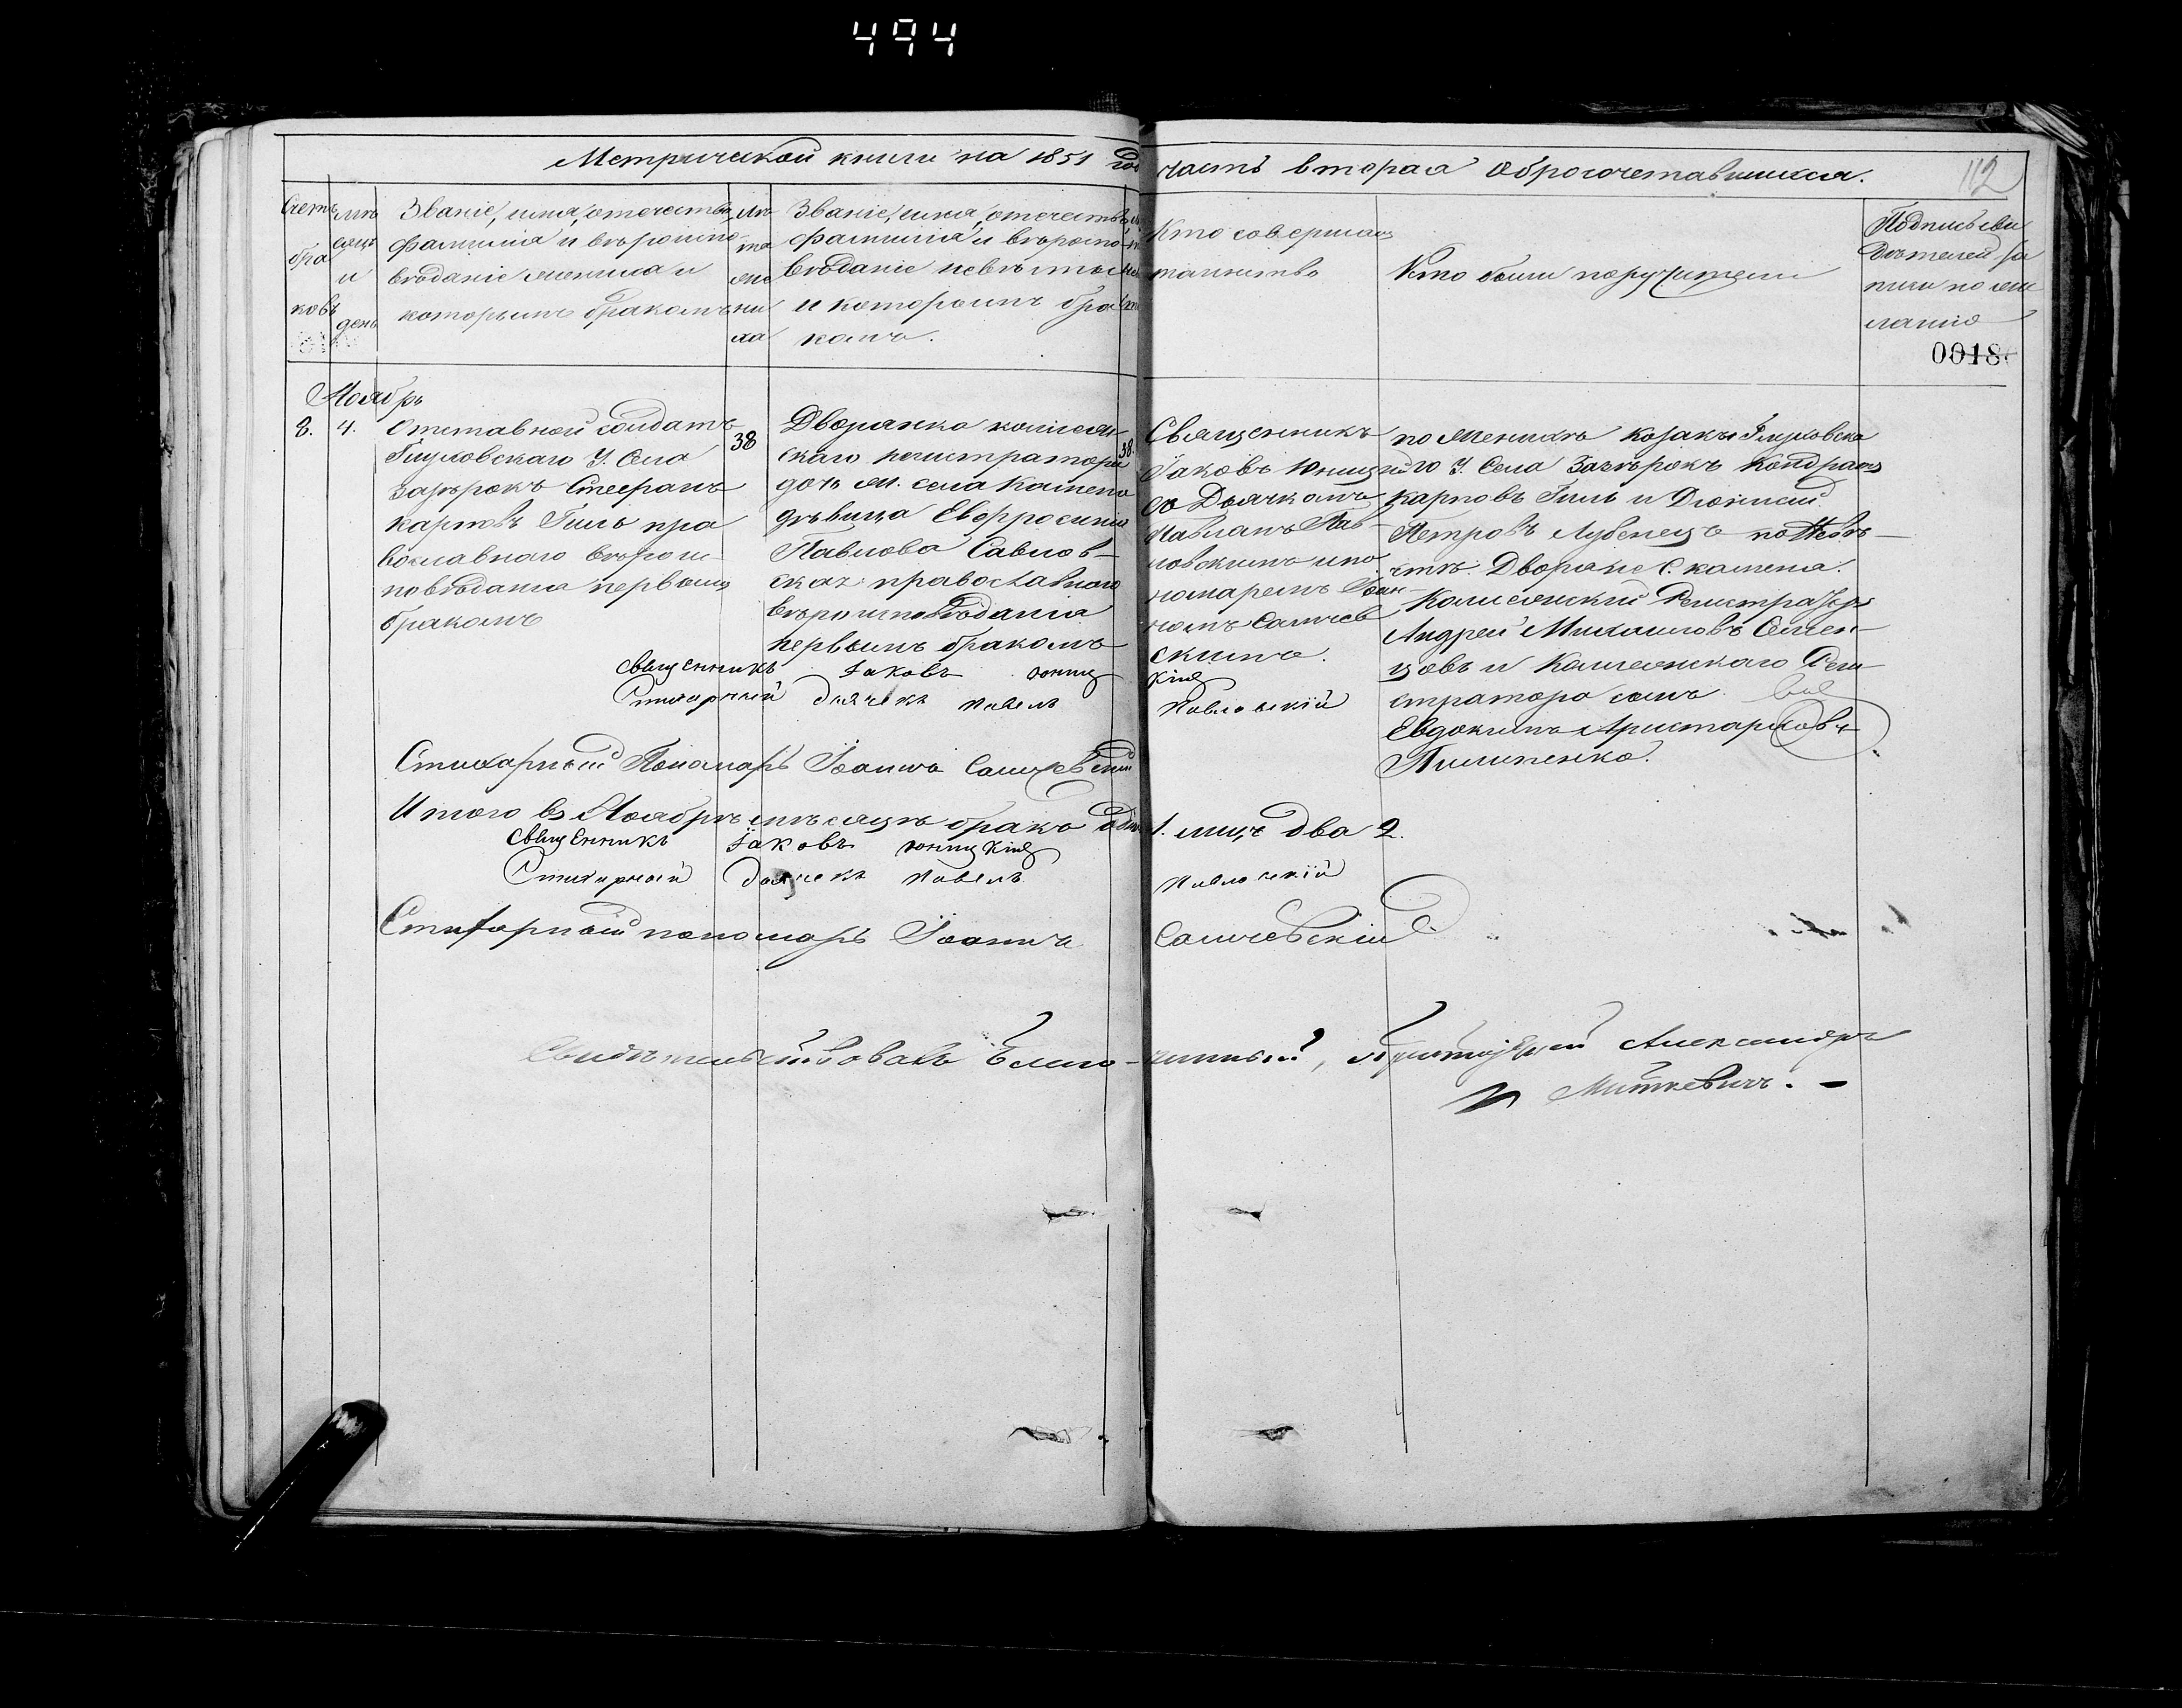 494
Метрической книги на 1851 год часть вторая о бракочетавшихся.
112
Счетъ бра ковъ
мѣ сяцъ и день
Званіе, имя, отечество,
фамилія и вѣроиспо-
вѣданіе жениха и
которымъ бракомъ
лѣ
та
же
ни
ха
Званіе, имя, отечество,
фамилія и вѣроиспо-
вѣданіе невѣсты
и которымъ бра
комъ.
Кто совершалъ
таинство
Кто были поручители
Подпись сви
дѣтелей за
писи по же
ланію
0018
Ноябрь
8. 4.
Отставной солдатъ
Глуховскаго У. Села
Зазѣрокъ Стефанъ
Карповъ Гиль пра
вославнаго вѣроис-
повѣданія первымъ
бракомъ
38
Дворянка коллеж-
скаго регистратора
дочь м. села Каменя
дѣвица Евфросинія
Павлова Савлов-
ская православнаго
вѣроисповѣданія
первымъ бракомъ
38.
Священникъ
Іаковъ Юницкій
съ Дьячкомъ
Павломъ Пав-
ловскимъ и по-
номаремъ Іоан-
номъ Саличев
скимъ.
по Женихѣ козаки Глуховска
го У. Села Зазѣрокъ Кондратъ
Карповъ Гиль и Діонисій
Петровъ Лубенецъ по Невѣ-
стѣ. Дворяне С. Каменя.
Коллежскій Регистраторъ
Андрей Михаиловъ Семен-
цовъ и Коллежскаго Реги-
стратора сынъ
Евдокимъ Аристарховъ
Пилипенко.
Священникъ Іаковъ Юницкій
Стихарный дьячекъ Павелъ Павловскій
Стихарный Пономарь Іоаннъ Саличевскій
Итого въ Ноябрѣ мѣсяцѣ брака одинъ 1. лицъ два 2.
Священникъ Іаковъ Юницкій
Стихарный дьячекъ Павелъ Павловскій
Стихарный пономарь Іоаннъ Саличевскій
Свидѣтельствовалъ Благочинный, Протоіерей Александръ
Миткевичъ.